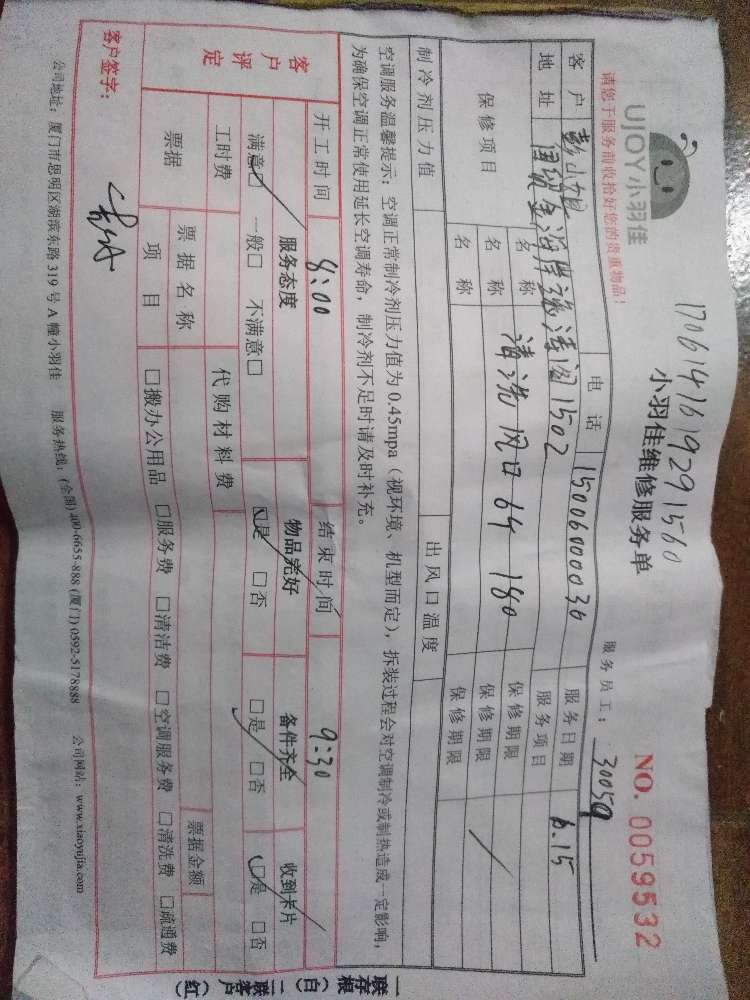 1706141619291560
UJOY小羽佳
小羽佳维修服务单
NO. 0059532
请您于服务前收拾好您的贵重物品！
服务员工： 30059
客户 彭小姐 电话 15006000030 服务日期 6.15
地址 国贸金海岸逸涛阁1502 服务项目
保修项目 名称 保修期限
名称 清洗风口6个 180 保修期限
名称 保修期限
制冷剂压力值 出风口温度
空调服务温馨提示：空调正常制冷剂压力值为0.45mpa（视环境、机型而定），拆装过程会对空调制冷或制热造成一定影响，
为确保空调正常使用延长空调寿命，制冷剂不足时请及时补充。
开工时间 8:00 结束时间 9:30
客户评定 服务态度 物品完好 备件齐全 收到卡片
满意□ 一般□ 不满意□ □是 □否 □是 □否 □是 □否
工时费 代购材料费
票据 票据名称 票据金额
项目 □搬办公用品 □服务费 □清洁费 □空调服务费 □清洗费 □疏通费
客户签字：
公司地址：厦门市思明区湖滨东路319号A幢小羽佳 服务热线：(全国) 400-6655-888 (厦门) 0592-5178888 公司网站：www.xiaoyujia.com
一联存根（白）二联客户（红）